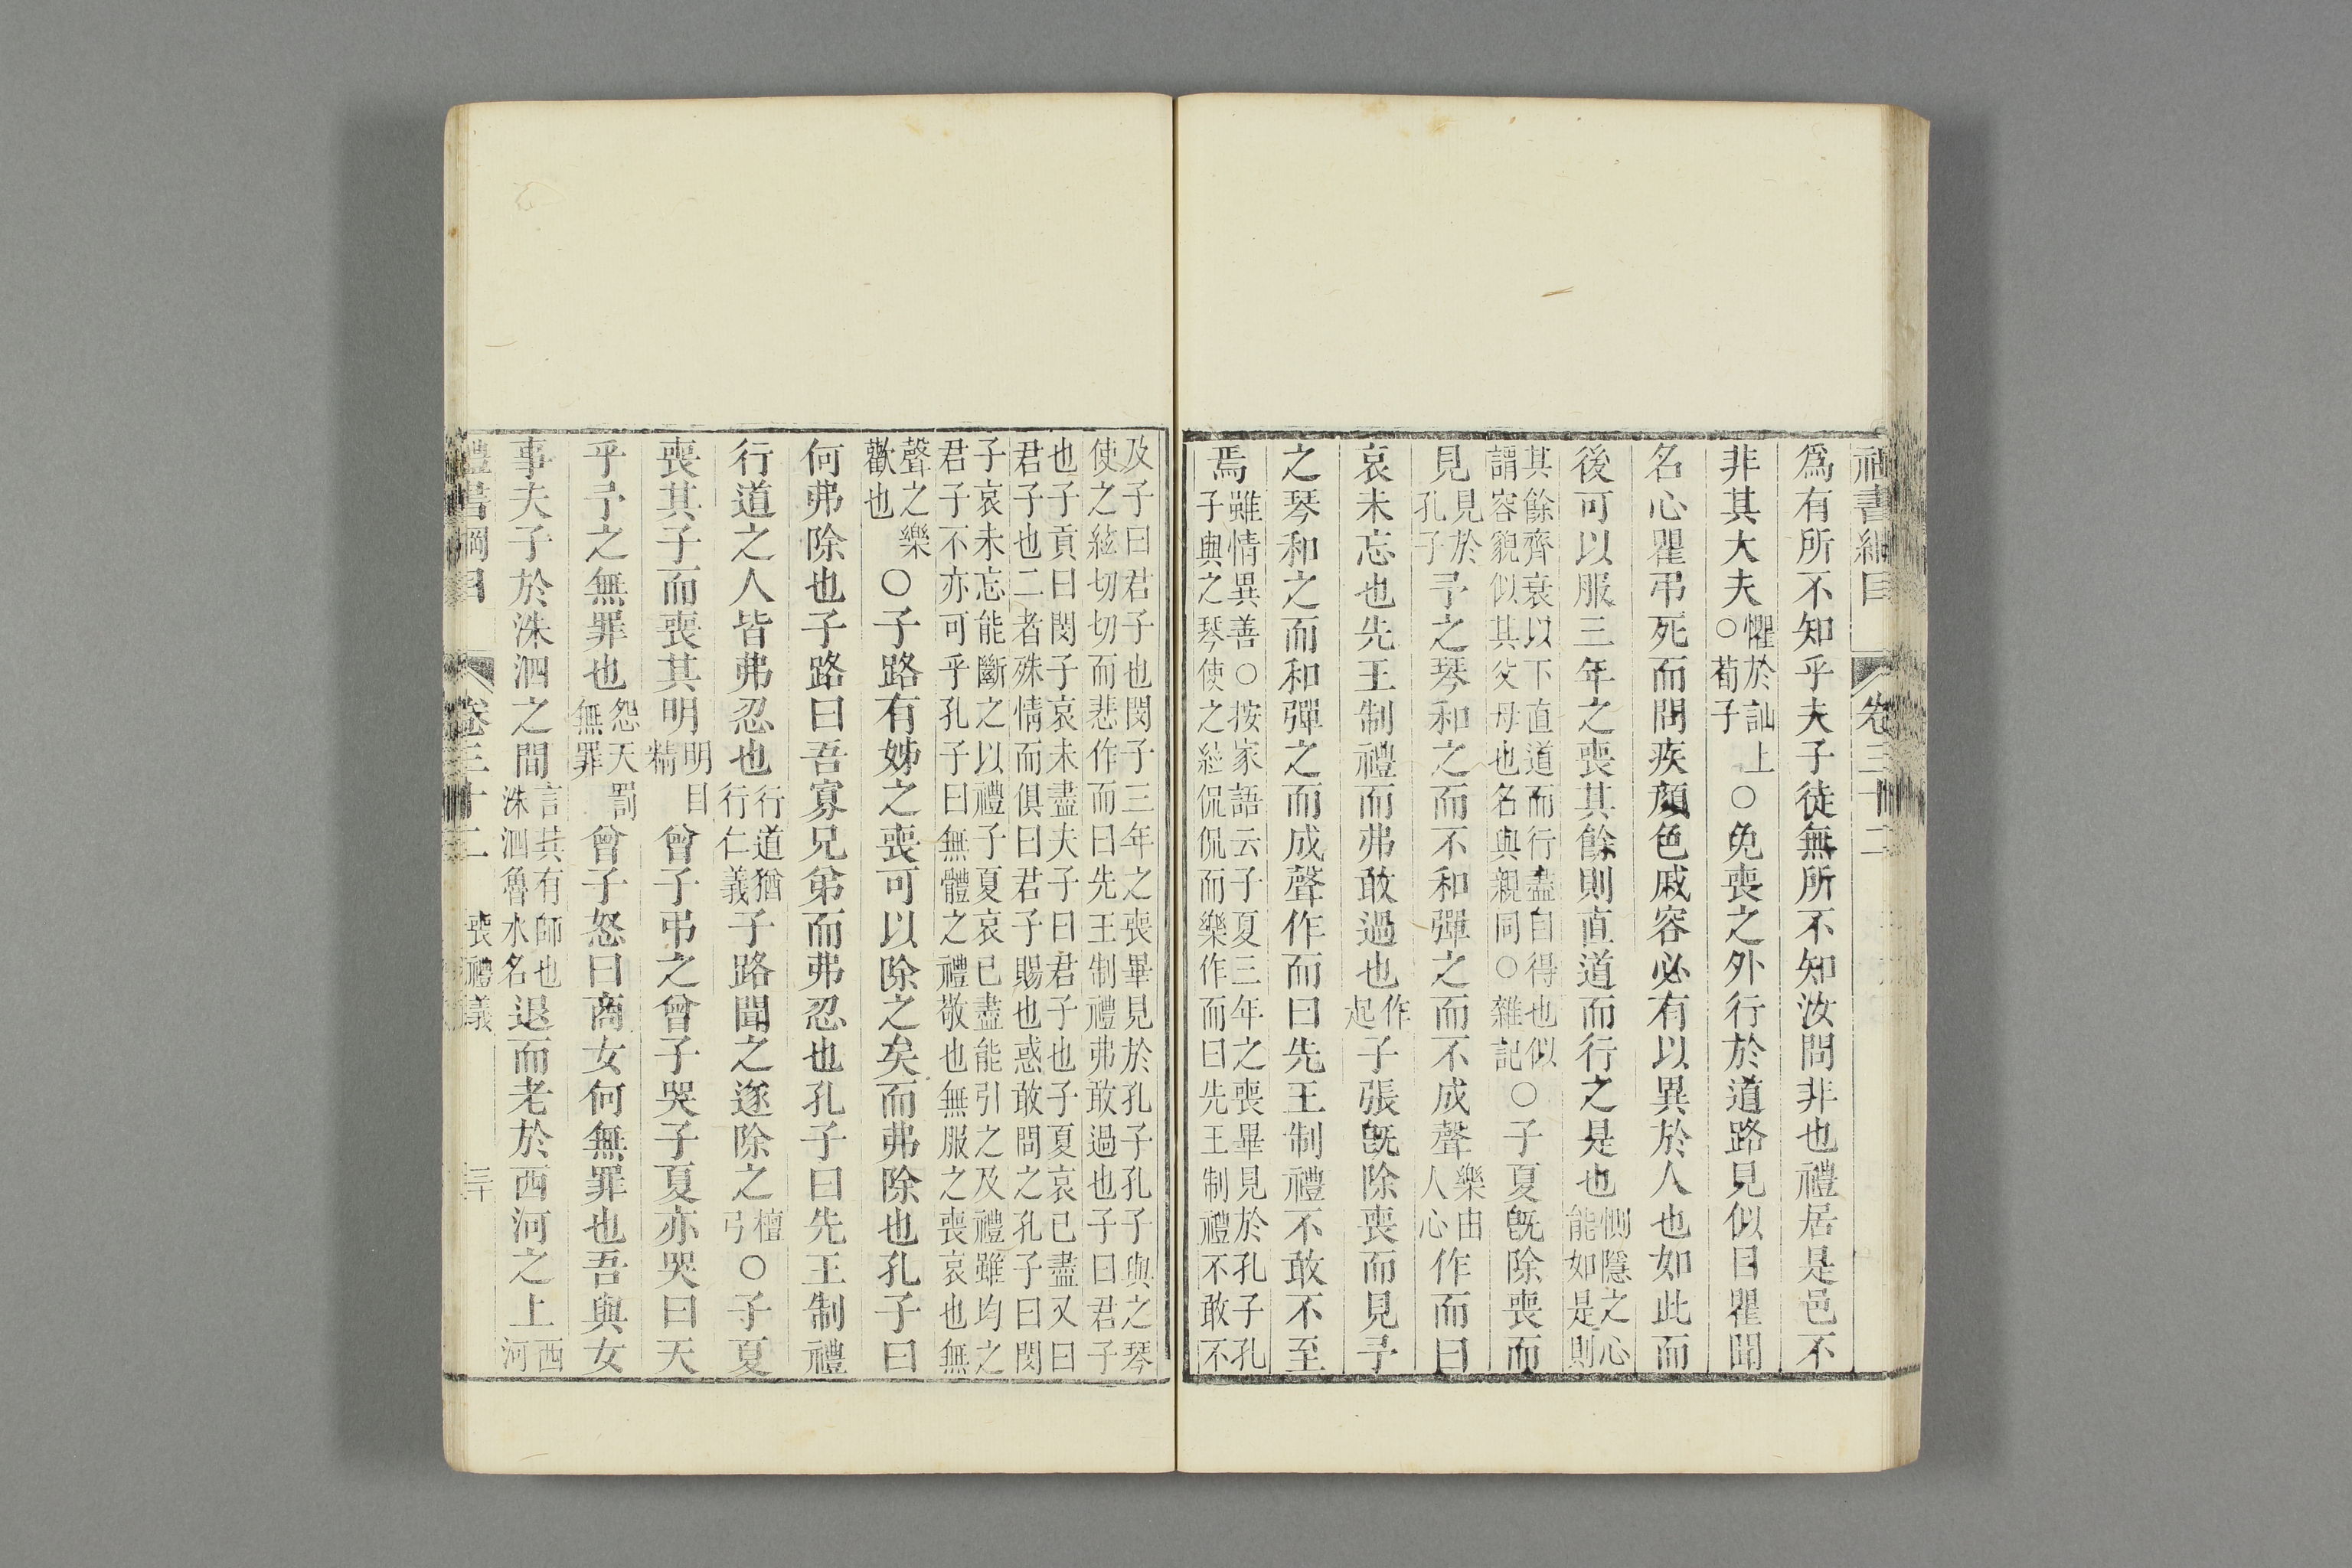 禮書綱目 卷三十二
爲有所不知乎夫子徒無所不知汝問非也禮居是邑不
非其大夫懼於訕上○荀子○免喪之外行於道路見似目瞿聞
名心瞿弔死而問疾顔色戚容必有以異於人也如此而
後可以服三年之喪其餘則直道而行之是也惻隱之心能如是則
其餘齊衰以下直道而行盡自得也似謂容貌似其父母也名與親同○雜記○子夏旣除喪而
見見於孔子予之琴和之而不和彈之而不成聲樂由人心作而曰
哀未忘也先王制禮而弗敢過也作起子張旣除喪而見予
之琴和之而和彈之而成聲作而曰先王制禮不敢不至
焉雖情異善○按家語云子夏三年之喪畢見於孔子孔子與之琴使之絃侃侃而樂作而曰先王制禮不敢不
及子曰君子也閔子三年之喪畢見於孔子孔子與之琴使之絃切切而悲作而曰先王制禮弗敢過也子曰君子
也子貢曰閔子哀未盡夫子曰君子也子夏哀已盡又曰君子也二者殊情而俱曰君子賜也惑敢問之孔子曰閔
子哀未忘能斷之以禮子夏哀已盡能引之及禮雖均之君子不亦可乎孔子曰無體之禮敬也無服之喪哀也無
聲之樂歡也○子路有姊之喪可以除之矣而弗除也孔子曰
何弗除也子路曰吾寡兄弟而弗忍也孔子曰先王制禮
行道之人皆弗忍也行道猶行仁義子路聞之遂除之檀弓○子夏
喪其子而喪其明明目精曾子弔之曾子哭子夏亦哭曰天
乎予之無罪也怨天罰無罪曾子怒曰商女何無罪也吾與女
事夫子於洙泗之間言其有師也洙泗魯水名退而老於西河之上西河
禮書綱目 卷三十二 喪禮義 三十